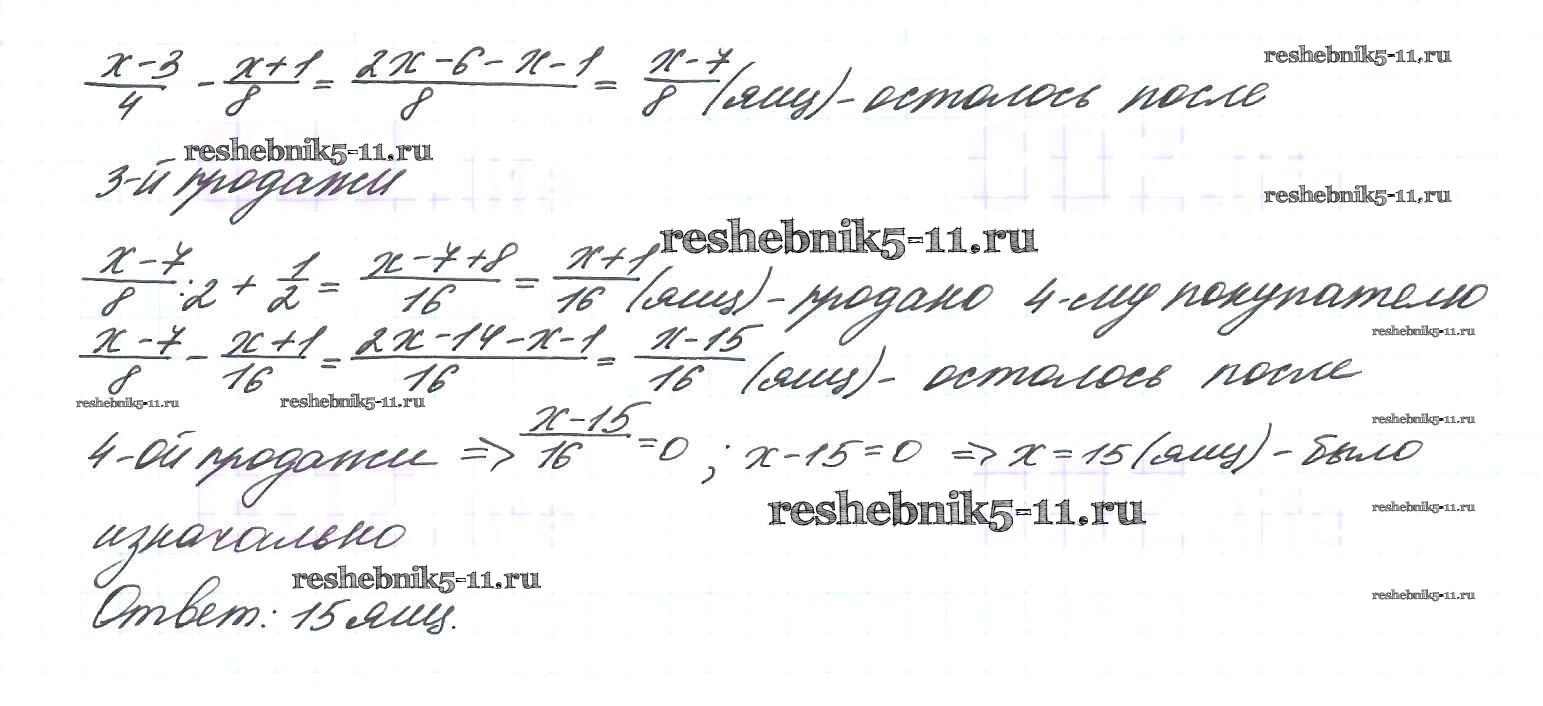 reshebnik5-11.ru
(x-3)/4 - (x+1)/8 = (2x-6-x-1)/8 = (x-7)/8 (ящ) - осталось после
reshebnik5-11.ru
3-й продажи
reshebnik5-11.ru
reshebnik5-11.ru
(x-7)/8 :2 + 1/2 = (x-7+8)/16 = (x+1)/16 (ящ) - продано 4-му покупателю
reshebnik5-11.ru
(x-7)/8 - (x+1)/16 = (2x-14-x-1)/16 = (x-15)/16 (ящ) - осталось после
reshebnik5-11.ru reshebnik5-11.ru
reshebnik5-11.ru
4-ой продажи => (x-15)/16 =0 ; x-15=0 => x=15 (ящ) - было
reshebnik5-11.ru reshebnik5-11.ru
изначально
reshebnik5-11.ru
reshebnik5-11.ru
Ответ: 15 ящ.